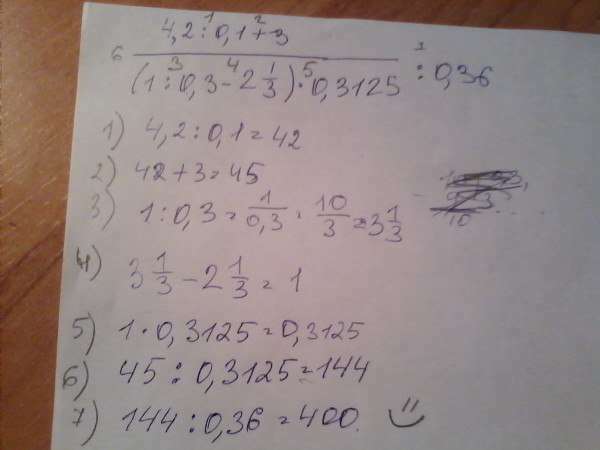 4,2 : 0,1 + 3
(1 : 0,3 - 2 1/3) · 0,3125 : 0,36
1) 4,2 : 0,1 = 42
2) 42 + 3 = 45
3) 1 : 0,3 = 1/0,3 = 10/3 = 3 1/3
4) 3 1/3 - 2 1/3 = 1
5) 1 · 0,3125 = 0,3125
6) 45 : 0,3125 = 144
7) 144 : 0,36 = 400.